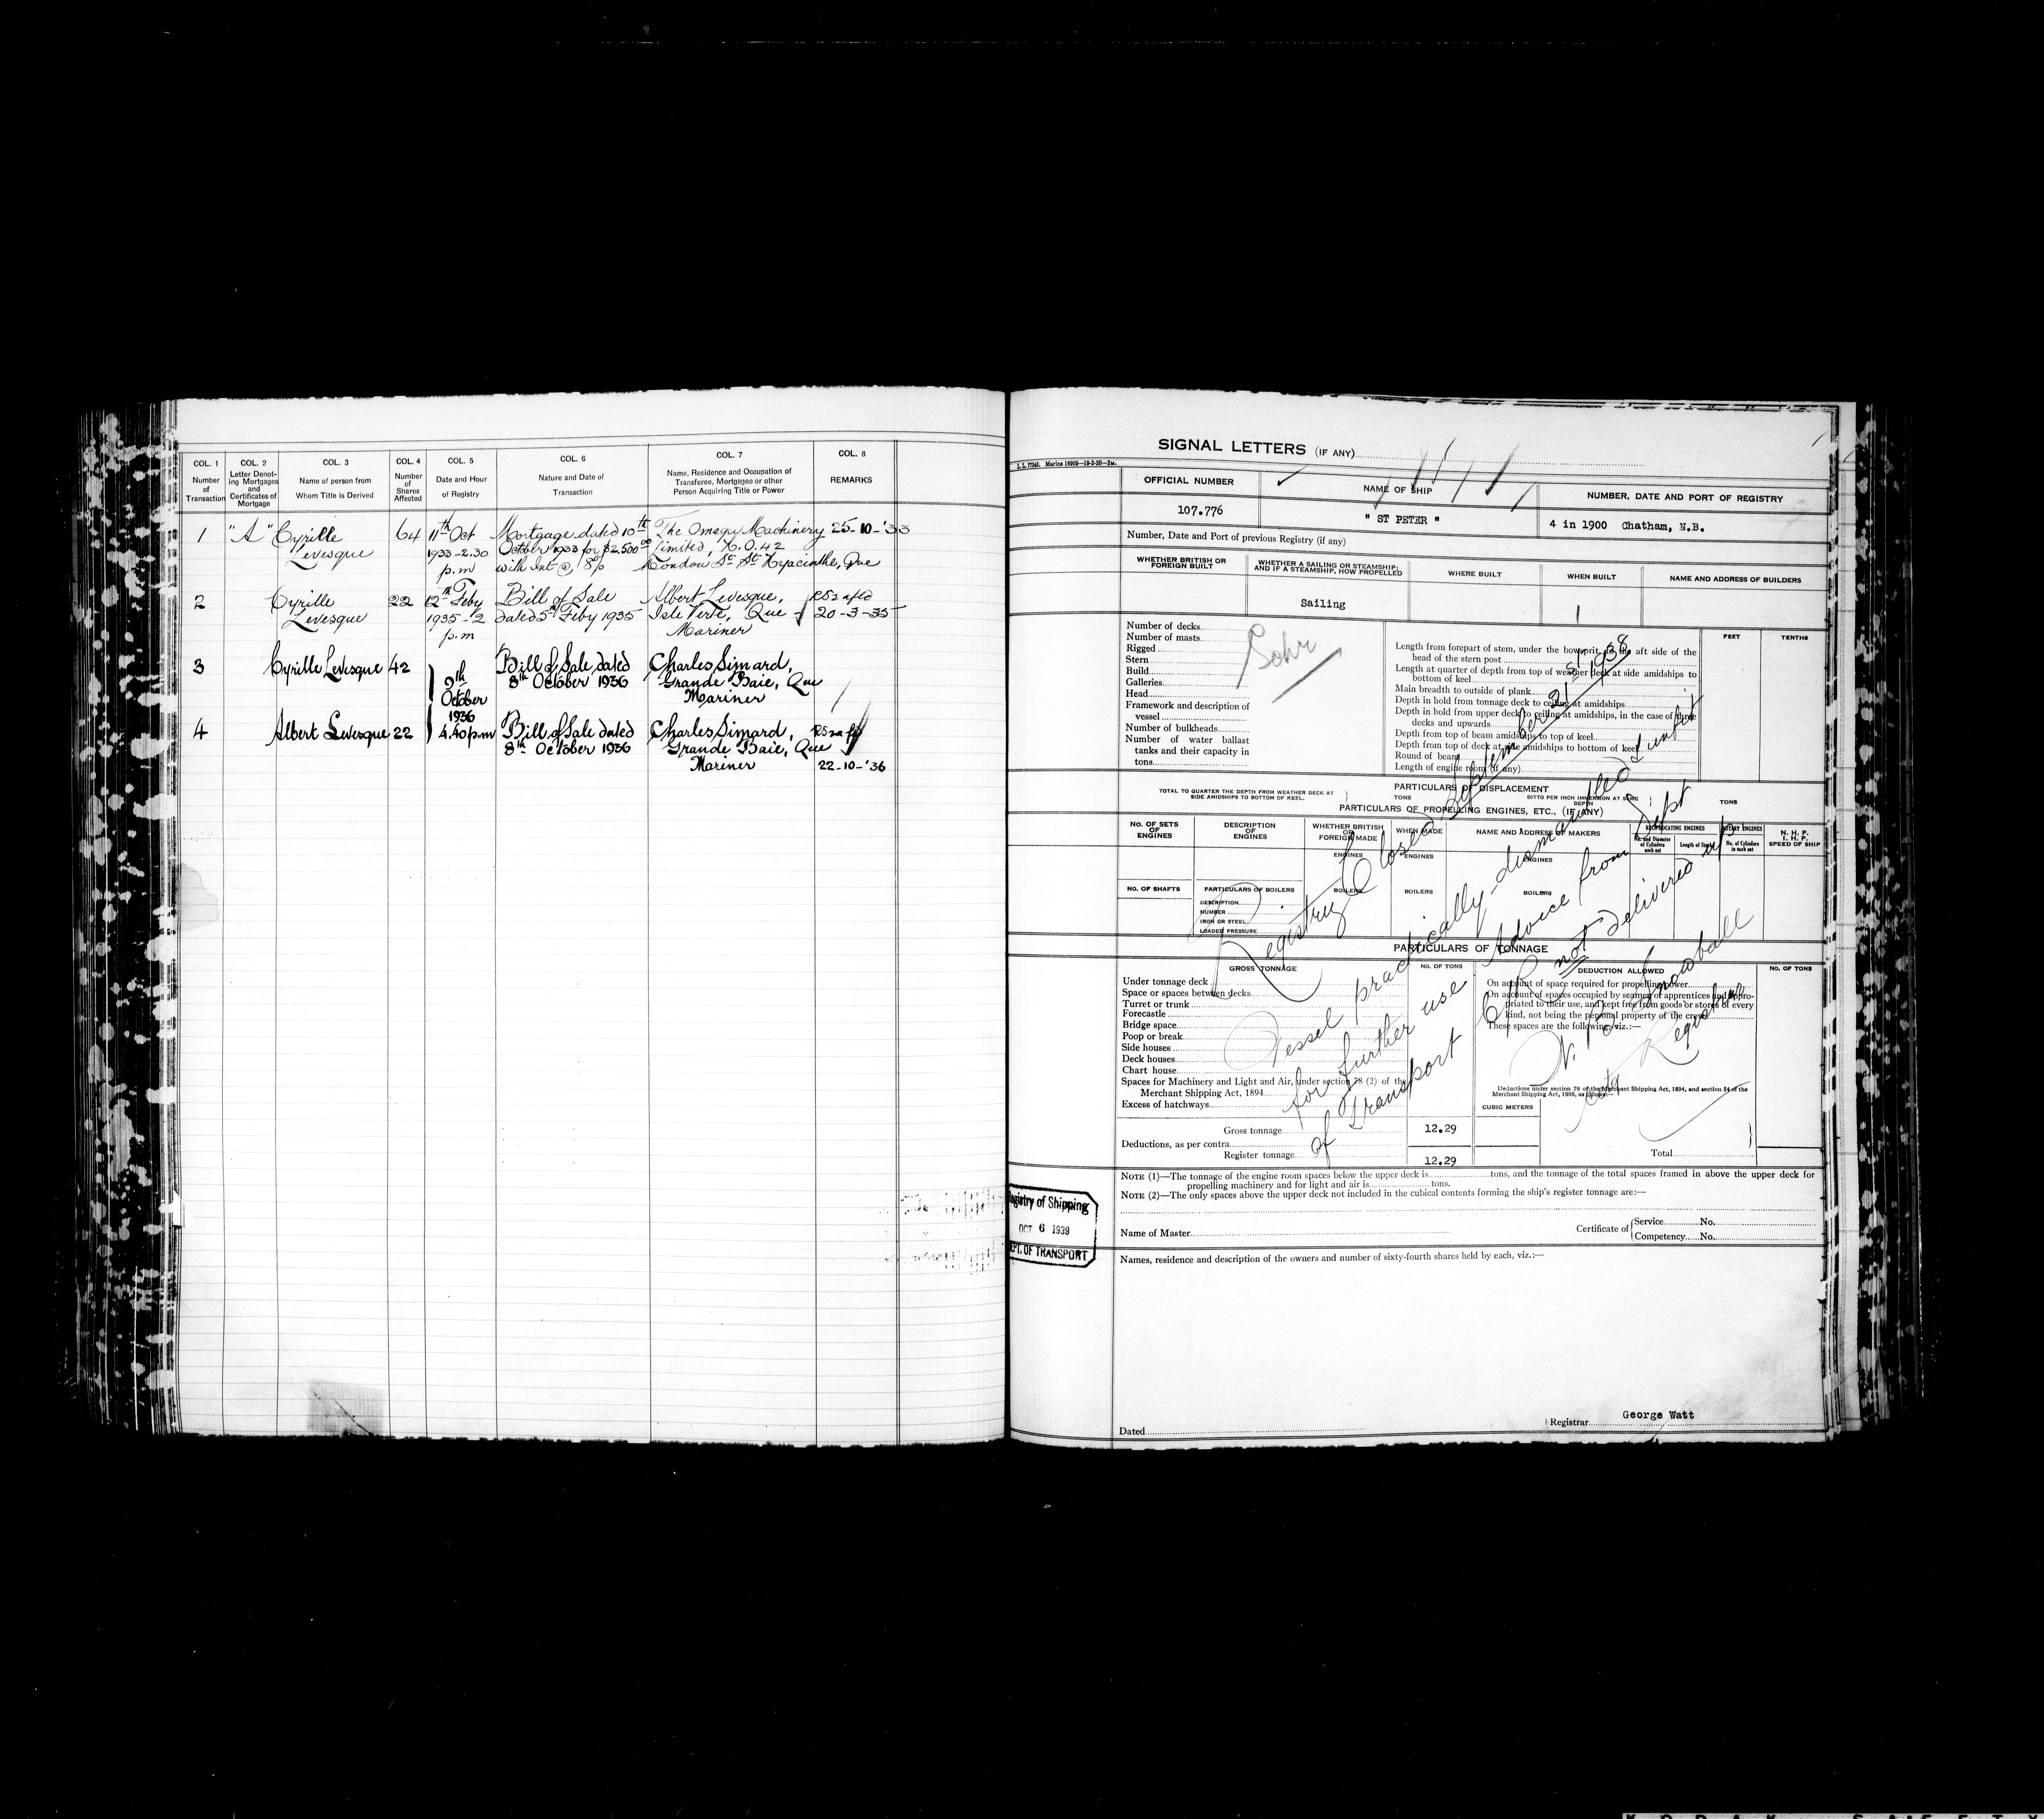 COL. 1 COL. 2 COL. 3 COL. 4 COL. 5 COL. 6 COL. 7 COL. 8
Number of Transaction
Letter Denoting Mortgages and Certificates of Mortgage
Name of person from Whom Title is Derived
Number of Shares Affected
Date and Hour of Registry
Nature and Date of Transaction
Name, Residence and Occupation of Transferee, Mortgagee or other Person Acquiring Title or Power
REMARKS
1 "A" Cyrille 64 11th Oct Mortgage dated 10th The Omega Machinery 25-10-'33
Levesque 1933-2.30 October 1933 for $2.500 00 Limited, 42
p.m with Int @ 8% St Hyacinthe, Que
2 Cyrille 22 12th Feby Bill of Sale Albert Levesque,
Levesque 1935-2 dated 5th Feby 1935 Isle Verte, Que 20-3-35
p.m Mariner
3 Cyrille Levesque 42 9th October 1936 4.40 p.m Bill of Sale dated Charles Simard,
8th October 1936 Grande Baie, Que
Mariner
4 Albert Levesque 22 Bill of Sale dated Charles Simard,
8th October 1936 Grande Baie, Que
Mariner 22-10-'36
SIGNAL LETTERS (IF ANY)
L.L. 77243. Marine 16909—19-2-20—2M.
OFFICIAL NUMBER NAME OF SHIP NUMBER, DATE AND PORT OF REGISTRY
107.776 " ST PETER " 4 in 1900 Chatham, N.B.
Number, Date and Port of previous Registry (if any)
WHETHER BRITISH OR FOREIGN BUILT
WHETHER A SAILING OR STEAMSHIP; AND IF A STEAMSHIP, HOW PROPELLED
WHERE BUILT
WHEN BUILT
NAME AND ADDRESS OF BUILDERS
Sailing
Number of decks
Number of masts
Rigged
Stern
Build
Galleries
Head
Framework and description of
vessel
Number of bulkheads
Number of water ballast
tanks and their capacity in
tons
Schr
FEET TENTHS
Length from forepart of stem, under the bowsprit, to the aft side of the
head of the stern post
Length at quarter of depth from top of weather deck at side amidships to
bottom of keel
Main breadth to outside of plank
Depth in hold from tonnage deck to ceiling at amidships
Depth in hold from upper deck to ceiling at amidships, in the case of three
decks and upwards
Depth from top of beam amidships to top of keel
Depth from top of deck at side amidships to bottom of keel
Round of beam
Length of engine room (if any)
PARTICULARS OF DISPLACEMENT
TOTAL TO QUARTER THE DEPTH FROM WEATHER DECK AT
SIDE AMIDSHIPS TO BOTTOM OF KEEL.
TONS
DITTO PER INCH IMMERSION AT SAME
DEPTH
TONS
PARTICULARS OF PROPELLING ENGINES, ETC., (IF ANY)
NO. OF SETS OF ENGINES
DESCRIPTION OF ENGINES
WHETHER BRITISH OR FOREIGN MADE
WHEN MADE
NAME AND ADDRESS OF MAKERS
RECIPROCATING ENGINES
No. and Diameter of Cylinders each set
Length of Stroke
ROTARY ENGINES
No. of Cylinders in each set
N. H. P.
I. H. P.
SPEED OF SHIP
ENGINES ENGINES ENGINES
NO. OF SHAFTS PARTICULARS OF BOILERS BOILERS BOILERS BOILERS
DESCRIPTION
NUMBER
IRON OR STEEL
LOADED PRESSURE
PARTICULARS OF TONNAGE
GROSS TONNAGE NO. OF TONS DEDUCTION ALLOWED NO. OF TONS
Under tonnage deck
Space or spaces between decks
Turret or trunk
Forecastle
Bridge space
Poop or break
Side houses
Deck houses
Chart house
Spaces for Machinery and Light and Air, under section 78 (2) of the
Merchant Shipping Act, 1894
Excess of hatchways
On account of space required for propelling power
On account of spaces occupied by seamen or apprentices and appro-
priated to their use, and kept free from goods or stores of every
kind, not being the personal property of the crew
These spaces are the following, viz.:—
Deductions under section 79 of the Merchant Shipping Act, 1894, and section 54 of the
Merchant Shipping Act, 1906, as follows:—
CUBIC METERS
Gross tonnage 12.29
Deductions, as per contra
Register tonnage 12.29
Total
Registry Closed September 21st 1938
Vessel practically dismantled & unfit
for further use Advice from Dept
of Transport C/R not delivered up
W. B. Snowball
Registrar
NOTE (1)—The tonnage of the engine room spaces below the upper deck is tons, and the tonnage of the total spaces framed in above the upper deck for
propelling machinery and for light and air is tons.
NOTE (2)—The only spaces above the upper deck not included in the cubical contents forming the ship's register tonnage are:—
egistry of Shipping
OCT 6 1939
EPT. OF TRANSPORT
Name of Master
Certificate of Service No.
Competency No.
Names, residence and description of the owners and number of sixty-fourth shares held by each, viz.:—
George Watt
Dated Registrar